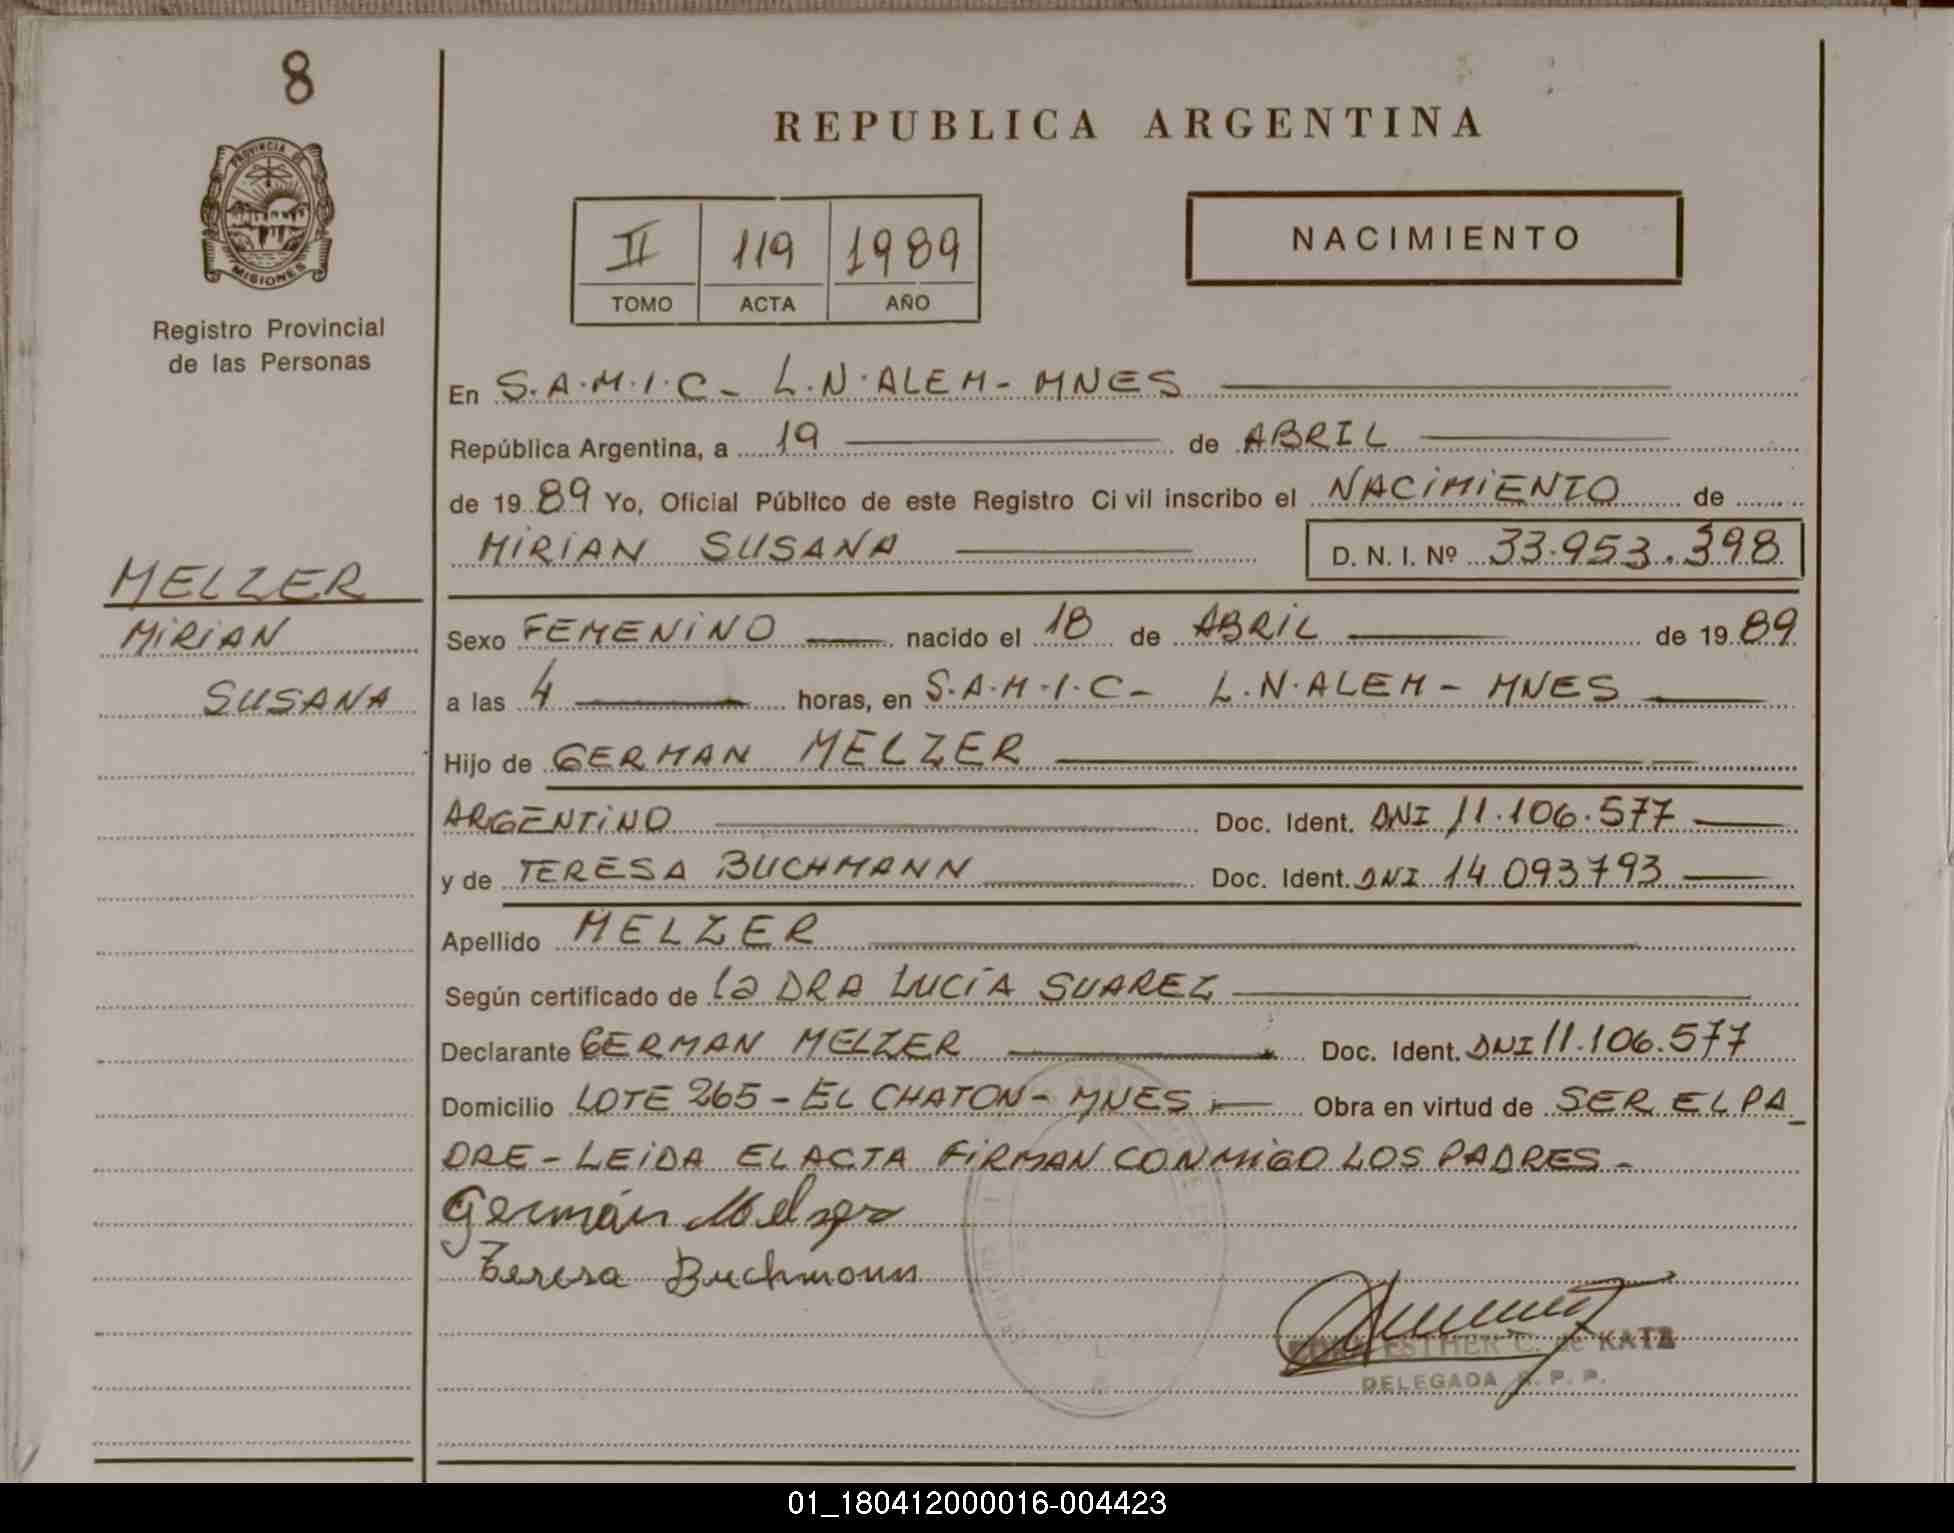 8
PROVINCIA DE
MISIONES
Registro Provincial
de las Personas
MELZER
MIRIAN
SUSANA
REPUBLICA ARGENTINA
II 119 1989
TOMO ACTA AÑO
NACIMIENTO
En S.A.M.I.C - L.N.ALEM - MNES
República Argentina, a 19 de ABRIL
de 19 89 Yo, Oficial Público de este Registro Civil inscribo el NACIMIENTO de
MIRIAN SUSANA D. N. I. Nº 33.953.398
Sexo FEMENINO nacido el 18 de ABRIL de 19 89
a las 4 horas, en S.A.M.I.C - L.N.ALEM - MNES
Hijo de GERMAN MELZER
ARGENTINO Doc. Ident. DNI 11.106.577
y de TERESA BUCHMANN Doc. Ident. DNI 14.093793
Apellido MELZER
Según certificado de la DRA LUCÍA SUAREZ
Declarante GERMAN MELZER Doc. Ident. DNI 11.106.577
Domicilio LOTE 265 - EL CHATON - MNES Obra en virtud de SER EL PA_
DRE - LEIDA EL ACTA FIRMAN CONMIGO LOS PADRES -
Germán Melzer
Teresa Buchmann
ESTHER C. de KATZ
DELEGADA R. P. P.
01_180412000016-004423